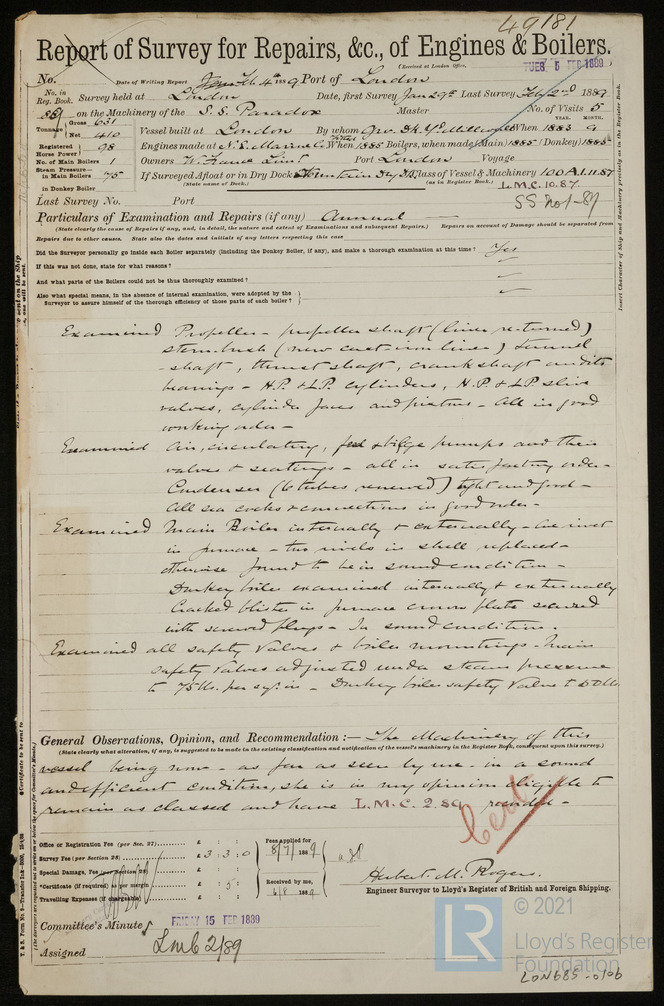 49181
Report of Survey for Repairs, &c., of Engines & Boilers.
(Received at London Office, TUES. 5 FEB 1889
No. Date of Writing Report 4th 1889 Port of London
No. in Reg. Book. Survey held at London Date, first Survey Jan 29th Last Survey Feb 2nd 1889
on the Machinery of the S.S. Paradox Master No. of Visits 5
Tonnage Gross 631 Net 410 Vessel built at London By whom When 1883 YEAR. MONTH. 9
Registered Horse Power 98 Engines made at N.E. Marine When 1885 Boilers, when made (Main) 1885 (Donkey) 1885
No. of Main Boilers 1 Owners Port London Voyage
Steam Pressure in Main Boilers 75 If Surveyed Afloat or in Dry Dock Class of Vessel & Machinery 100 A1. 11.87
(State name of Dock.) (as in Register Book.) L.M.C. 10.87
in Donkey Boiler
SS No 1-87
Last Survey No. Port
Particulars of Examination and Repairs (if any) Annual
(State clearly the cause of Repairs if any, and, in detail, the nature and extent of Examinations and subsequent Repairs.) Repairs on account of Damage should be separated from
Repairs due to other causes. State also the dates and initials of any letters respecting this case
Did the Surveyor personally go inside each Boiler separately (including the Donkey Boiler, if any), and make a thorough examination at this time? Yes
If this was not done, state for what reasons?
And what parts of the Boilers could not be thus thoroughly examined?
Also what special means, in the absence of internal examination, were adopted by the
Surveyor to assure himself of the thorough efficiency of those parts of each boiler?
Examined Propeller - propeller shaft (liner re-turned)
stern bush (new cast-iron liner) tunnel
- shaft, thrust shaft, crank shaft and its
bearings - H.P. & L.P. cylinders, H.P. & L.P. slide
valves, cylinder faces and pistons - all in good
working order -
Examined Air, circulating, feed & bilge pumps and their
valves & seatings - all in satisfactory order -
Condenser (6 tubes renewed) tight and good -
All sea cocks & connections in good order -
Examined Main Boiler internally & externally - one rivet
in furnace - two rivets in shell replaced -
otherwise found to be in sound condition -
Donkey boiler examined internally & externally
Cracked blister in furnace crown plate secured
with screwed plugs - In sound condition.
Examined all safety valves & boiler mountings - Main
safety valves adjusted under steam pressure
to 75 lbs. per sq. in - Donkey boiler safety valve to
General Observations, Opinion, and Recommendation :— The Machinery of this
(State clearly what alteration, if any, is suggested to be made in the existing classification and notification of the vessel's machinery in the Register Book, consequent upon this survey.)
vessel being now - as far as seen by me - in a sound
and efficient condition, she is in my opinion eligible to
remain as classed and have L.M.C. 2.89 recorded -
Office or Registration Fee (per Sec. 27) £ : :
Survey Fee (per Section 28) £ 3 : 3 : 0
Special Damage, Fee (per Section 28) £ : :
*Certificate (if required) as per margin £ : 5 :
Travelling Expenses (if chargeable) £ : :
Fees applied for
Received by me,
Herbert M. Rogers.
Engineer Surveyor to Lloyd's Register of British and Foreign Shipping.
Committee's Minute FRIDAY 15 FEB 1889
Assigned LMC 2/89
LR
© 2021
Lloyd's Register
Foundation
LON685-0106